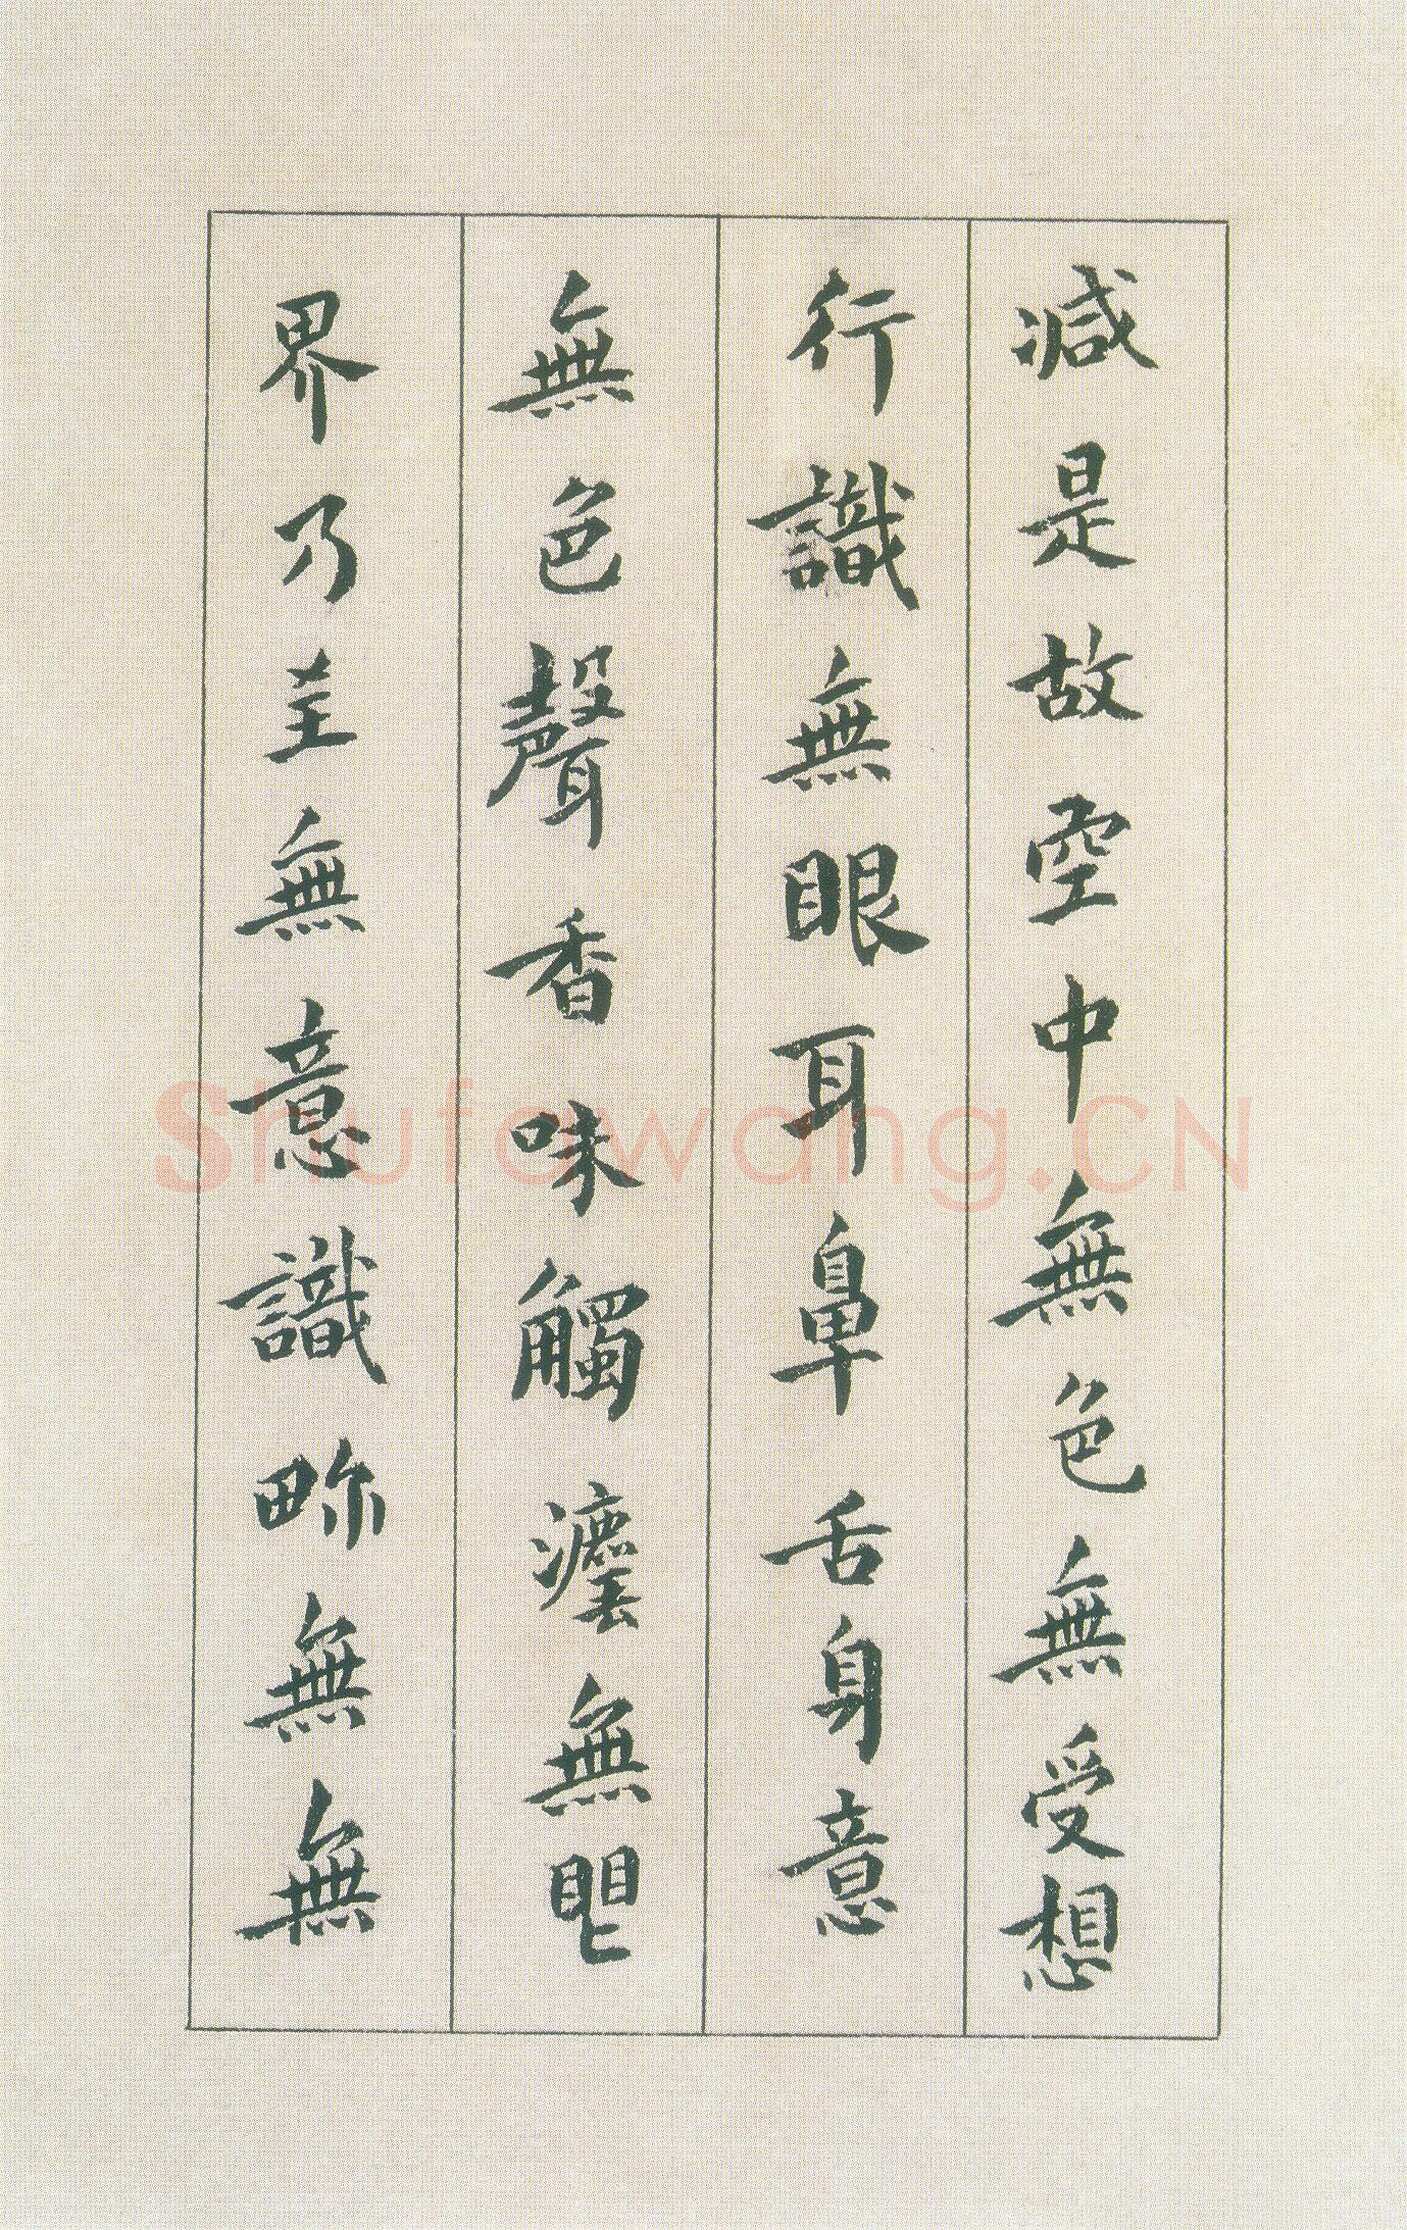 減是故空中無色無受想
行識無眼耳鼻舌身意
無色聲香味觸灋無眼
界乃至無意識畍無無
Shufawang.CN